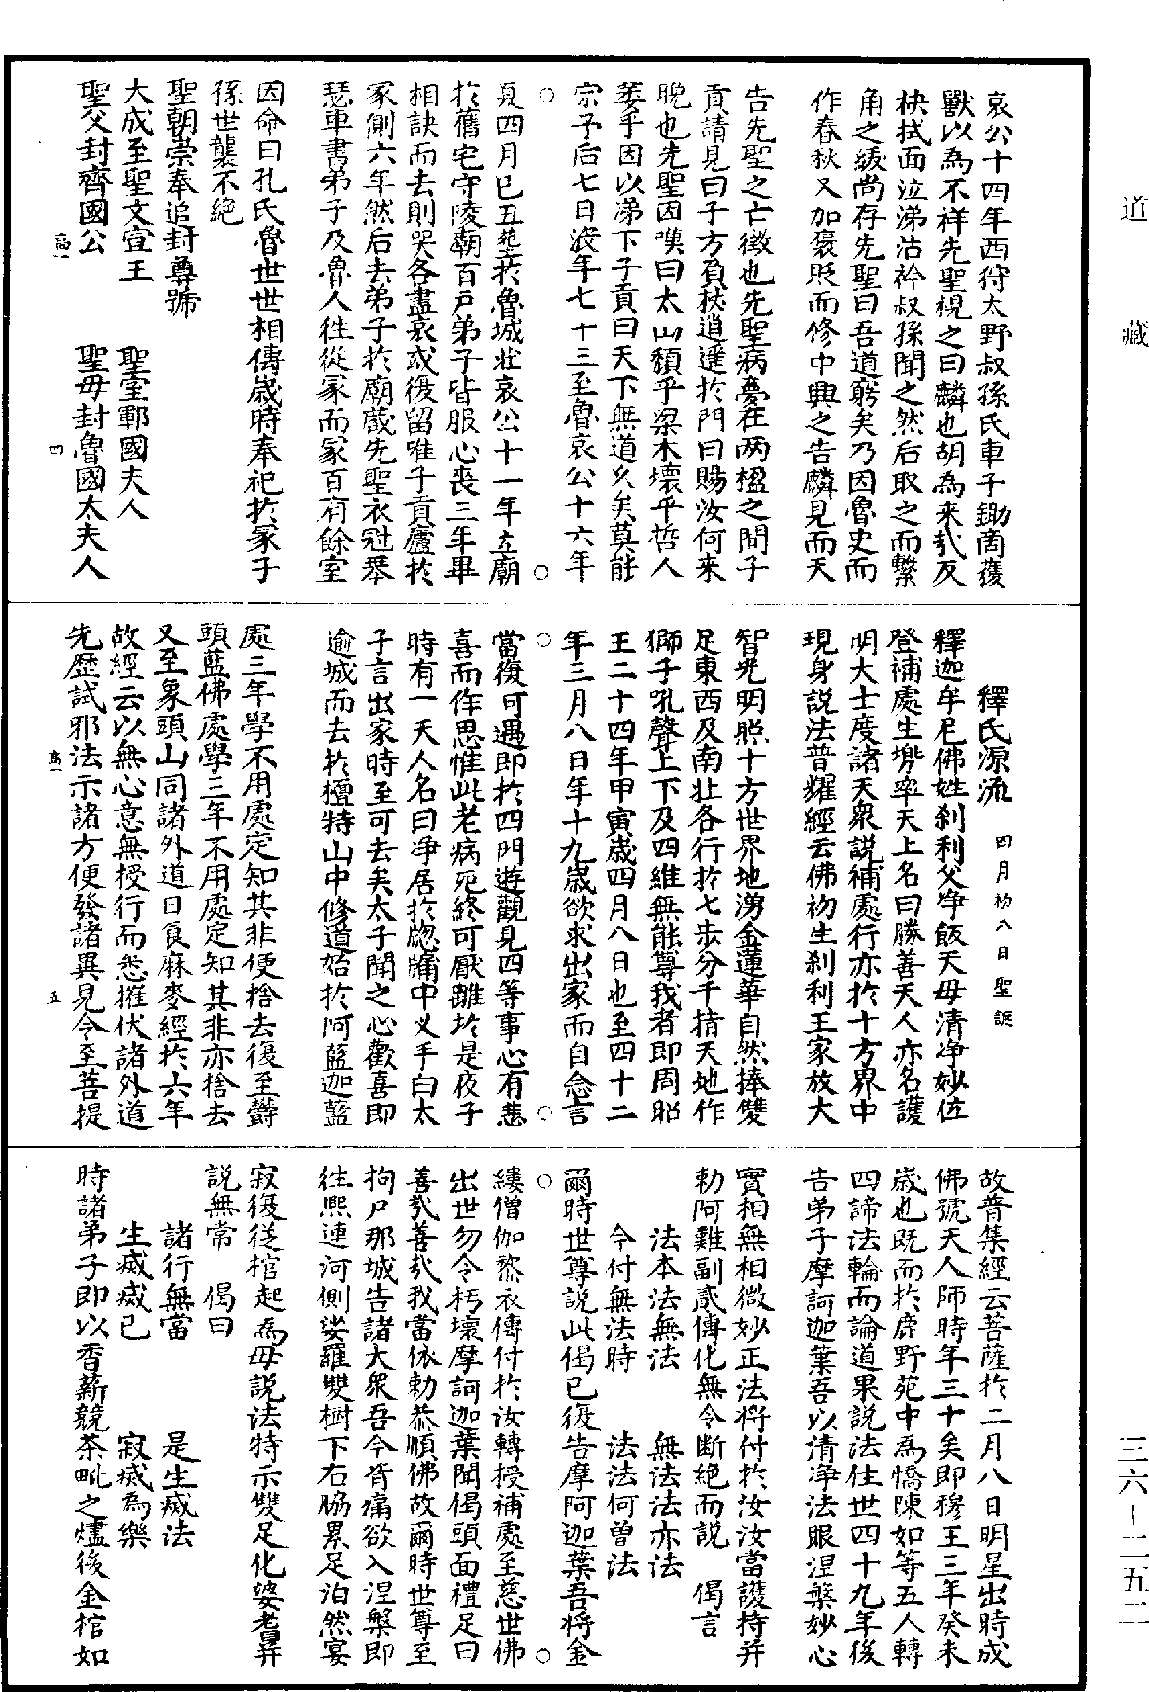 道藏
哀公十四年西狩太野叔孫氏車子鋤商獲
獸以為不祥先聖視之曰麟也胡為来哉反
袂拭面泣涕沾衿叔孫聞之然后取之而繫
角之紱尚存先聖曰吾道窮矣乃因魯史而
作春秋又加褒貶而修中興之告麟見而天
告先聖之亡徵也先聖病夢在兩楹之間子
貢請見曰子方負杖逍遥於門曰賜汝何来
晚也先聖因嘆曰太山頽乎梁木壞乎哲人
萎乎因以涕下子貢曰天下無道久矣莫能
宗予后七日没年七十三至魯哀公十六年
夏四月己丑塟於魯城北哀公十一年立廟
於舊宅守陵廟百戶弟子皆服心喪三年畢
相訣而去則哭各盡哀或復留唯子貢廬於
冢側六年然后去弟子於廟蔵先聖衣冠琴
瑟車書弟子及魯人往從冢而家百有餘室
因命曰孔氏魯世世相傳歲時奉祀於冢子
孫世襲不絶
聖朝崇奉追封尊號
大成至聖文宣王　聖室鄆國夫人
聖父封齊國公　聖母封魯國太夫人
高一　四
釋氏源流　四月初八日聖誕
釋迦牟尼佛姓刹利父淨飯天母清淨妙位
登補處生兠率天上名曰勝善天人亦名護
明大士度諸天衆説補處行亦於十方界中
現身説法普耀經云佛初生刹利王家放大
智光明照十方世界地湧金蓮華自然捧雙
足東西及南北各行於七步分手指天地作
獅子吼聲上下及四維無能尊我者即周昭
王二十四年甲寅歲四月八日也至四十二
年三月八日年十九歲欲求出家而自念言
當復可遇即於四門遊觀見四等事心有悲
喜而作思惟此老病死終可厭離於是夜子
時有一天人名曰淨居於牕牖中叉手白太
子言出家時至可去矣太子聞之心歡喜即
逾城而去於檀特山中修道始於阿藍迦藍
處三年學不用處定知其非便捨去復至欝
頭藍佛處學三年不用處定知其非亦捨去
又至象頭山同諸外道日食麻麥經於六年
故經云以無心意無授行而悉摧伏諸外道
先歷試邪法示諸方便發諸異見令至菩提
高一　五
故普集經云菩薩於二月八日明星出時成
佛號天人師時年三十矣即穆王三年癸未
歲也既而於鹿野苑中為憍陳如等五人轉
四諦法輪而論道果説法住世四十九年後
告弟子摩訶迦葉吾以清淨法眼涅槃妙心
實相無相微妙正法将付於汝汝當護持并
勅阿難副貳傳化無令断絶而説　偈言
法本法無法　無法法亦法
今付無法時　法法何曽法
爾時世尊説此偈已復告摩阿迦葉吾将金
縷僧伽黎衣傳付於汝轉授補處至慈世佛
出世勿令朽壞摩訶迦葉聞偈頭面禮足曰
善哉善哉我當依勅恭順佛故爾時世尊至
拘尸那城告諸大衆吾今背痛欲入涅槃即
往熙連河側娑羅雙樹下右脇累足泊然宴
寂復從棺起為母説法特示雙足化婆耆并
説無常　偈曰
諸行無當　是生滅法
生滅滅已　寂滅為樂
時諸弟子即以香薪競荼毗之燼後金棺如
三六－二五二